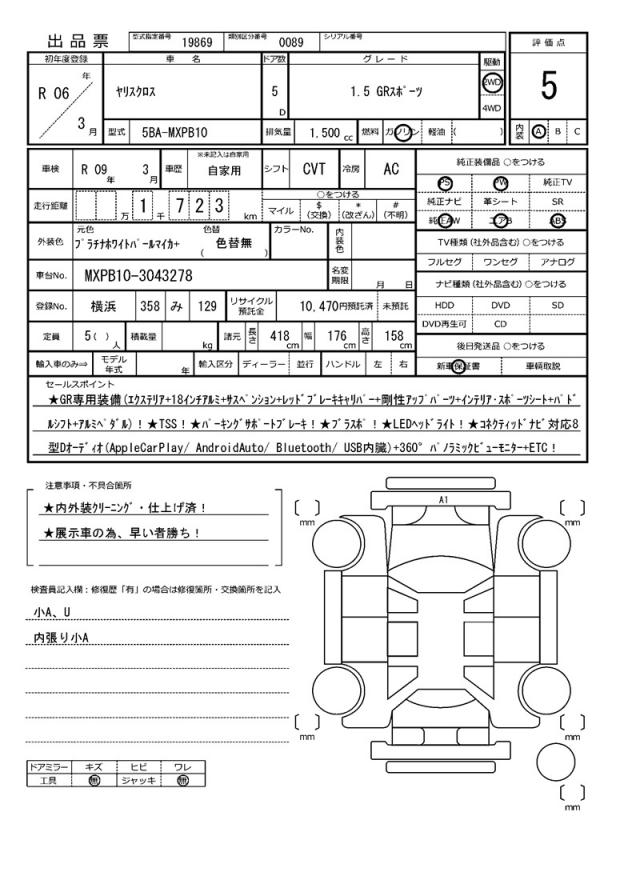 出品票 型式指定番号 19869 類別区分番号 0089 シリアル番号
評価点
5
初年度登録 車名 ドア数 グレード 駆動
R 06 年 3 月 ヤリスクロス 5 D 1.5 GRスポーツ 2WD 4WD
型式 5BA-MXPB10 排気量 1.500 cc 燃料 ガソリン 軽油 ( )
内装 A B C
車検 R 09 年 3 月 車歴 ※未記入は自家用 自家用 シフト CVT 冷房 AC
走行距離 万 1 千 7 2 3 km
○をつける
マイル $ (交換) * (改ざん) # (不明)
外装色 元色 プラチナホワイトパールマイカ+ 色替 ( 色替無 ) カラーNo. 内装色
車台No. MXPB10-3043278 名変期限 月 日
登録No. 横浜 358 み 129 リサイクル預託金 10,470円預託済 未預託
定員 5( ) 人 積載量 kg 諸元 長さ 418 cm 幅 176 cm 高さ 158 cm
輸入車のみ⇒ モデル年式 年 輸入区分 ディーラー 並行 ハンドル 左 右
純正装備品 ○をつける
PS PW 純正TV
純正ナビ 革シート SR
純正AW エアB ABS
TV種類 (社外品含む) ○をつける
フルセグ ワンセグ アナログ
ナビ種類 (社外品含む) ○をつける
HDD DVD SD
DVD再生可 CD
後日発送品 ○をつける
新車保証書 車輌取説
セールスポイント
★GR専用装備(エクステリア+18インチアルミ+サスペンション+レッドブレーキキャリパー+剛性アップパーツ+インテリア・スポーツシート+パド
ルシフト+アルミペダル)！★TSS！★パーキングサポートブレーキ！★プラスポ！★LEDヘッドライト！★コネクティッドナビ対応8
型Dオーディオ(AppleCarPlay/ AndroidAuto/ Bluetooth/ USB内臓)+360°パノラミックビューモニター+ETC！
注意事項・不具合箇所
★内外装クリーニング・仕上げ済！
★展示車の為、早い者勝ち！
検査員記入欄：修復歴「有」の場合は修復箇所・交換箇所を記入
小A、U
内張り小A
ドアミラー キズ ヒビ ワレ
工具 無 ジャッキ 無
A1
mm
mm
mm
mm
mm